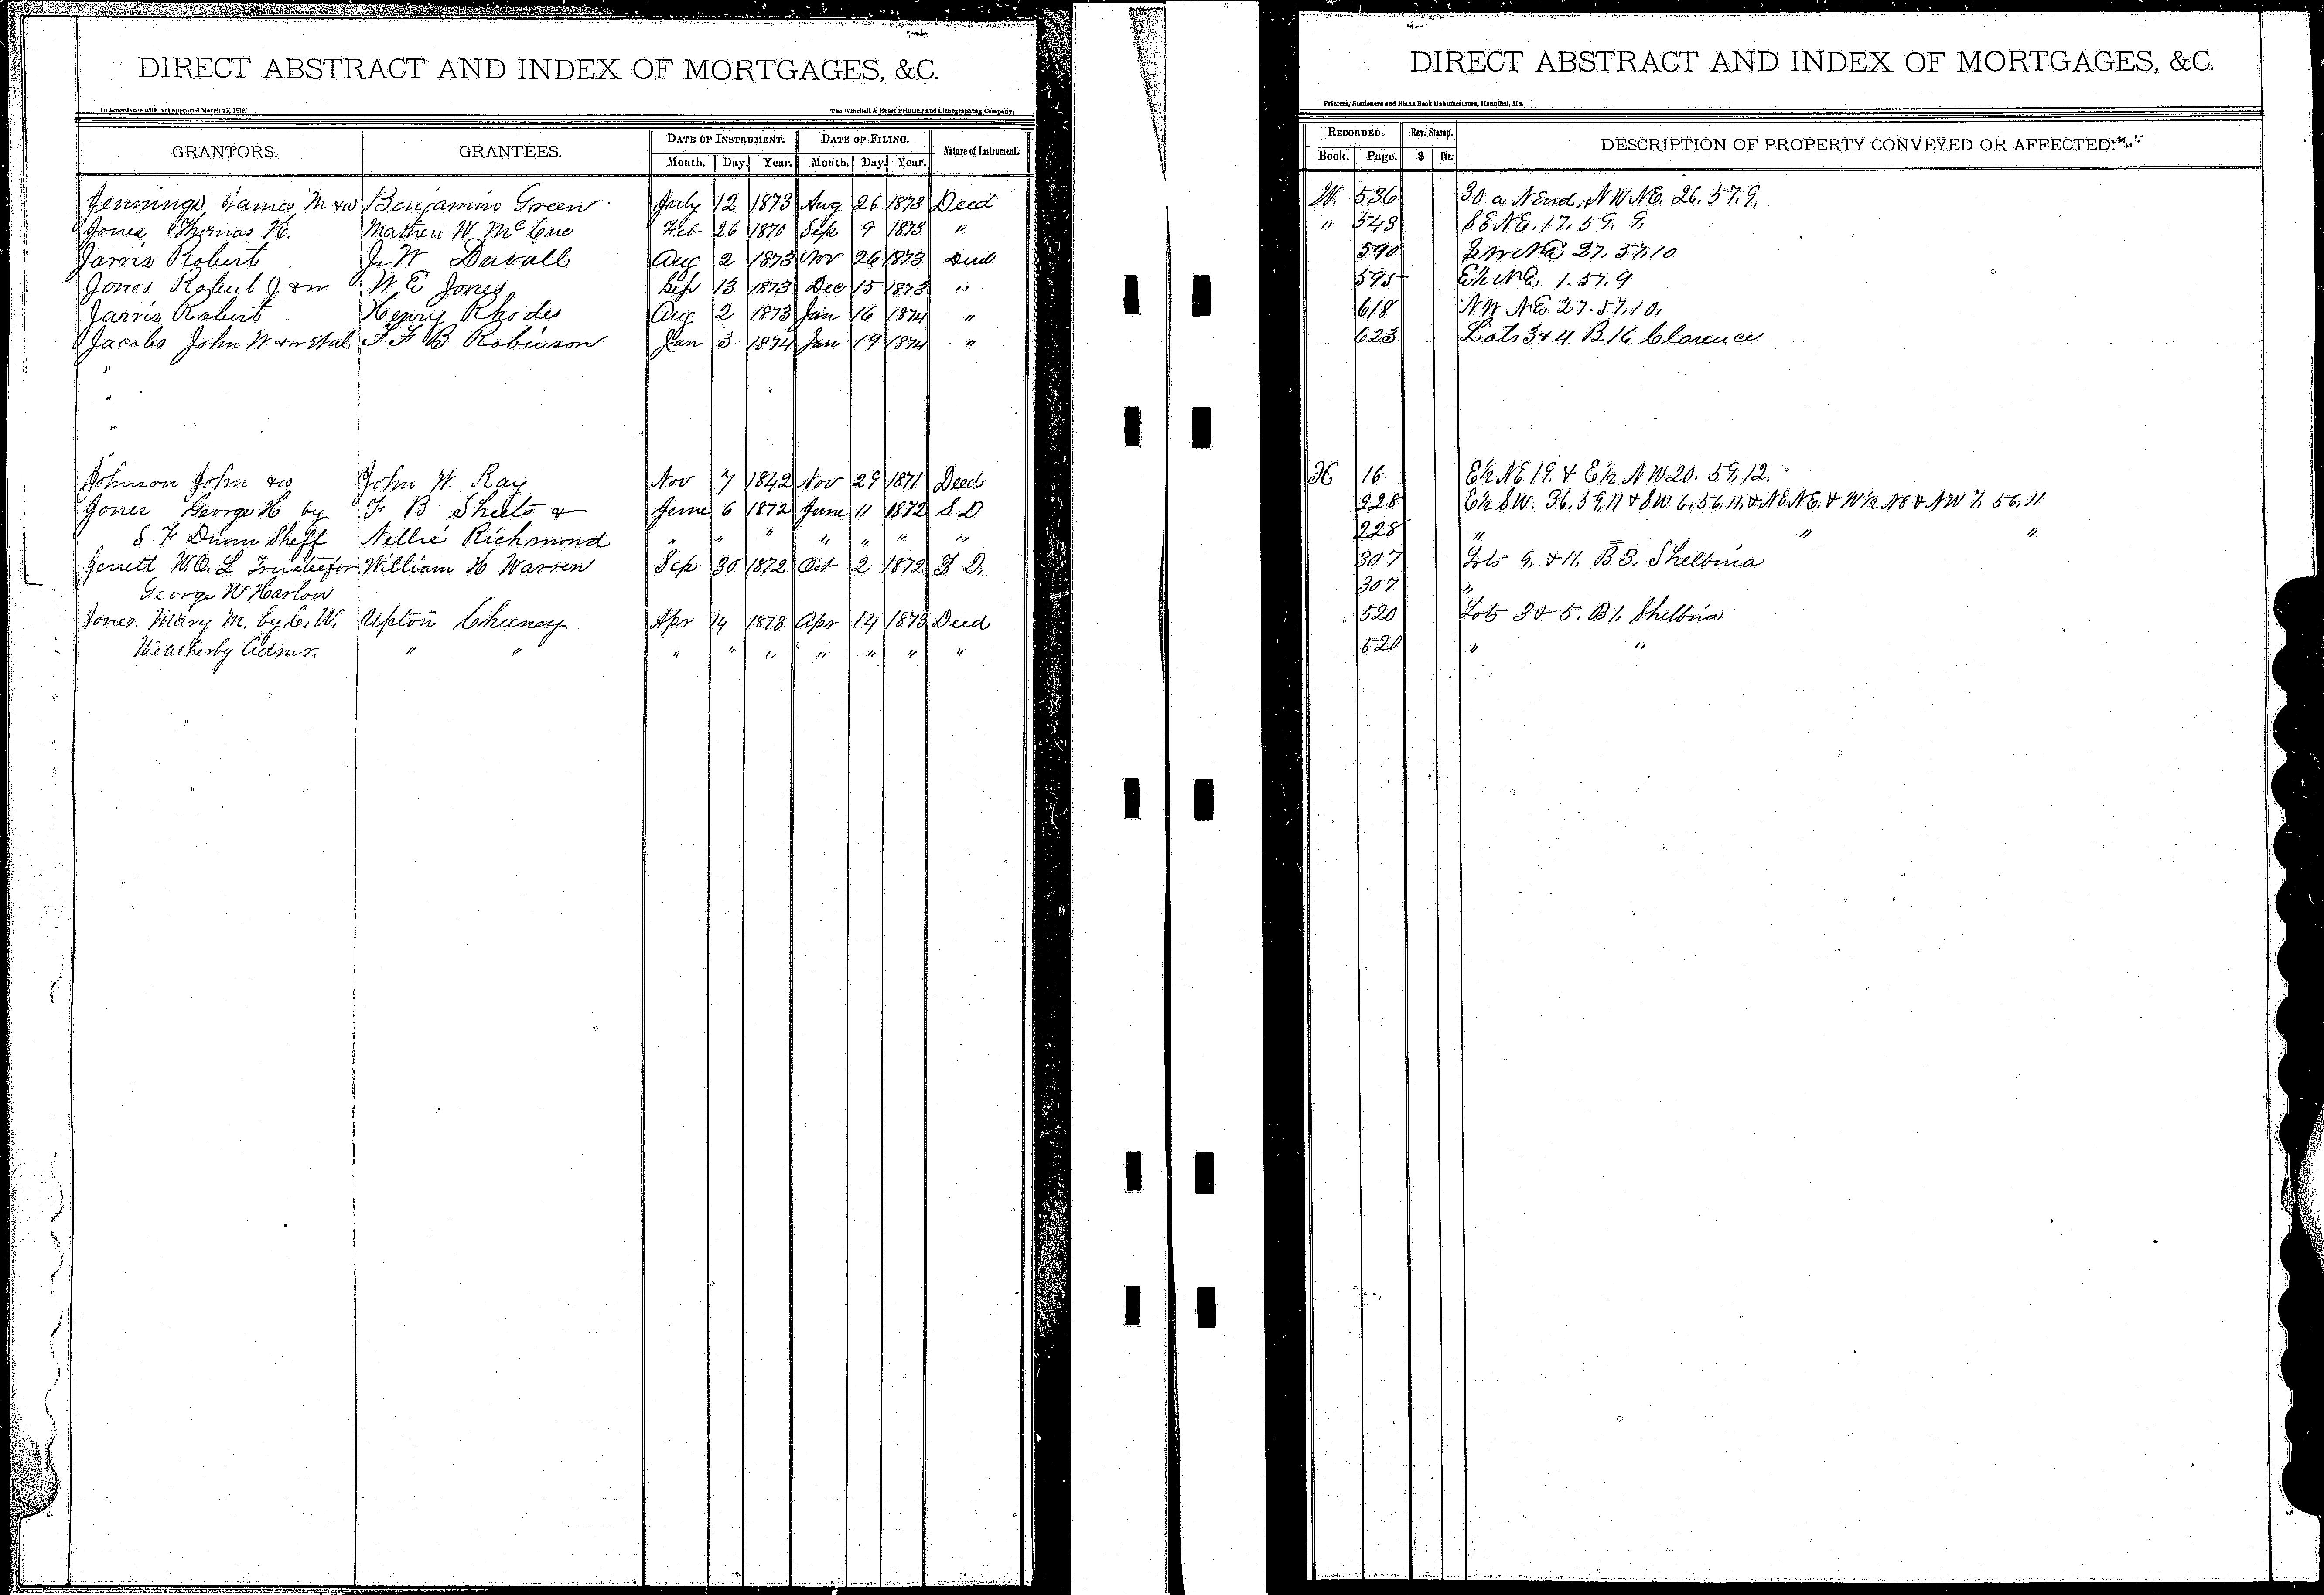 DIRECT ABSTRACT AND INDEX OF MORTGAGES, &C.
In accordance with Act approved March 25, 1870. The Winchell & Ebert Printing and Lithographing Company,
GRANTORS. GRANTEES. DATE OF INSTRUMENT. DATE OF FILING. Nature of Instrument.
Month. Day. Year. Month. Day. Year.
Jennings James M &w Benjamin Green July 12 1873 Aug 26 1873 Deed
Jones Thomas H. Mathew W McCue Feb 26 1870 Sep 9 1873 "
Jarvis Robert J. W Duvall Aug 2 1873 Nov 26 1873 Deed
Jones Robert J &w W E Jones Sep 13 1873 Dec 15 1873 "
Jarvis Robert Henry Rhodes Aug 2 1873 Jan 16 1874 "
Jacobs John W &w et al F F B Robinson Jan 3 1874 Jan 19 1874 "
"
"
"
"
Johnson John &w John W. Ray Nov 7 1842 Nov 29 1871 Deed
Jones George H by F B Sheets & June 6 1872 June 11 1872 S D
S F Dunn Sheff Nellie Richmond " " " " " " "
Jerrett W. O. L Trustee for William H Warren Sep 30 1872 Oct 2 1872 T D.
George W Harlow
Jones. Mary M. by C. W. Upton Cheeney Apr 14 1873 Apr 14 1873 Deed
Weatherby Admr. " " " " " " " " "
DIRECT ABSTRACT AND INDEX OF MORTGAGES, &C.
Printers, Stationers and Blank Book Manufacturers, Hannibal, Mo.
RECORDED. Rev. Stamp. DESCRIPTION OF PROPERTY CONVEYED OR AFFECTED.
Book. Page. $ Cts.
W. 536 30 a N End, N W NE. 26. 57. 9.
" 543 SE NE. 17. 59. 9.
590 SW NE 27. 57. 10
595 E½ NE 1. 57. 9
618 NW NE 27. 57. 10.
623 Lots 3 & 4 B 16 Clarence
H 16 E½ NE 19. & E½ NW 20. 59. 12.
228 E½ SW. 36. 59. 11 & SW 6. 56. 11. & NE NE. & W½ NE & NW 7. 56. 11
228 " " "
307 Lots 9. & 11. B 3. Shelbina
307 "
520 Lots 3 & 5. B 1. Shelbina
520 " "